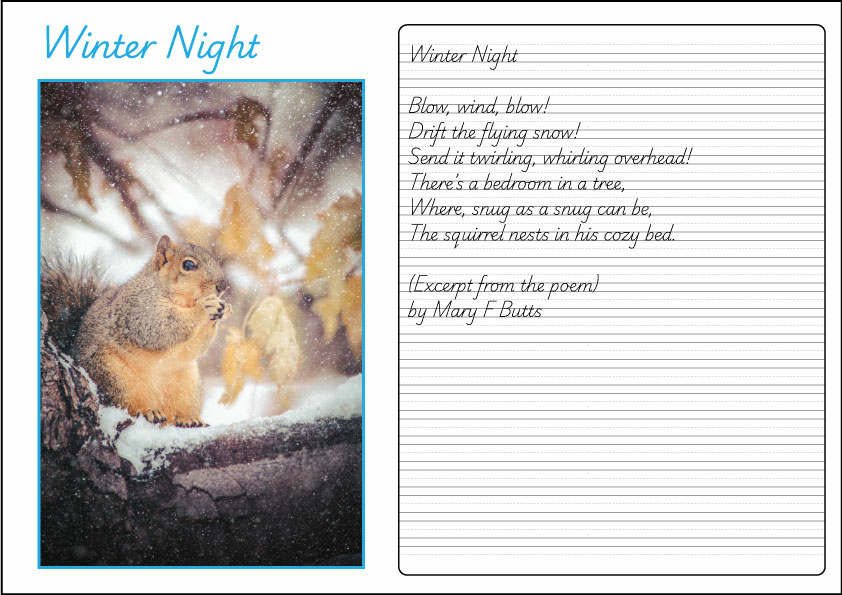 Winter Night
Winter Night
Blow, wind, blow!
Drift the flying snow!
Send it twirling, whirling overhead!
There's a bedroom in a tree,
Where, snug as a snug can be,
The squirrel nests in his cozy bed.
(Excerpt from the poem)
by Mary F Butts